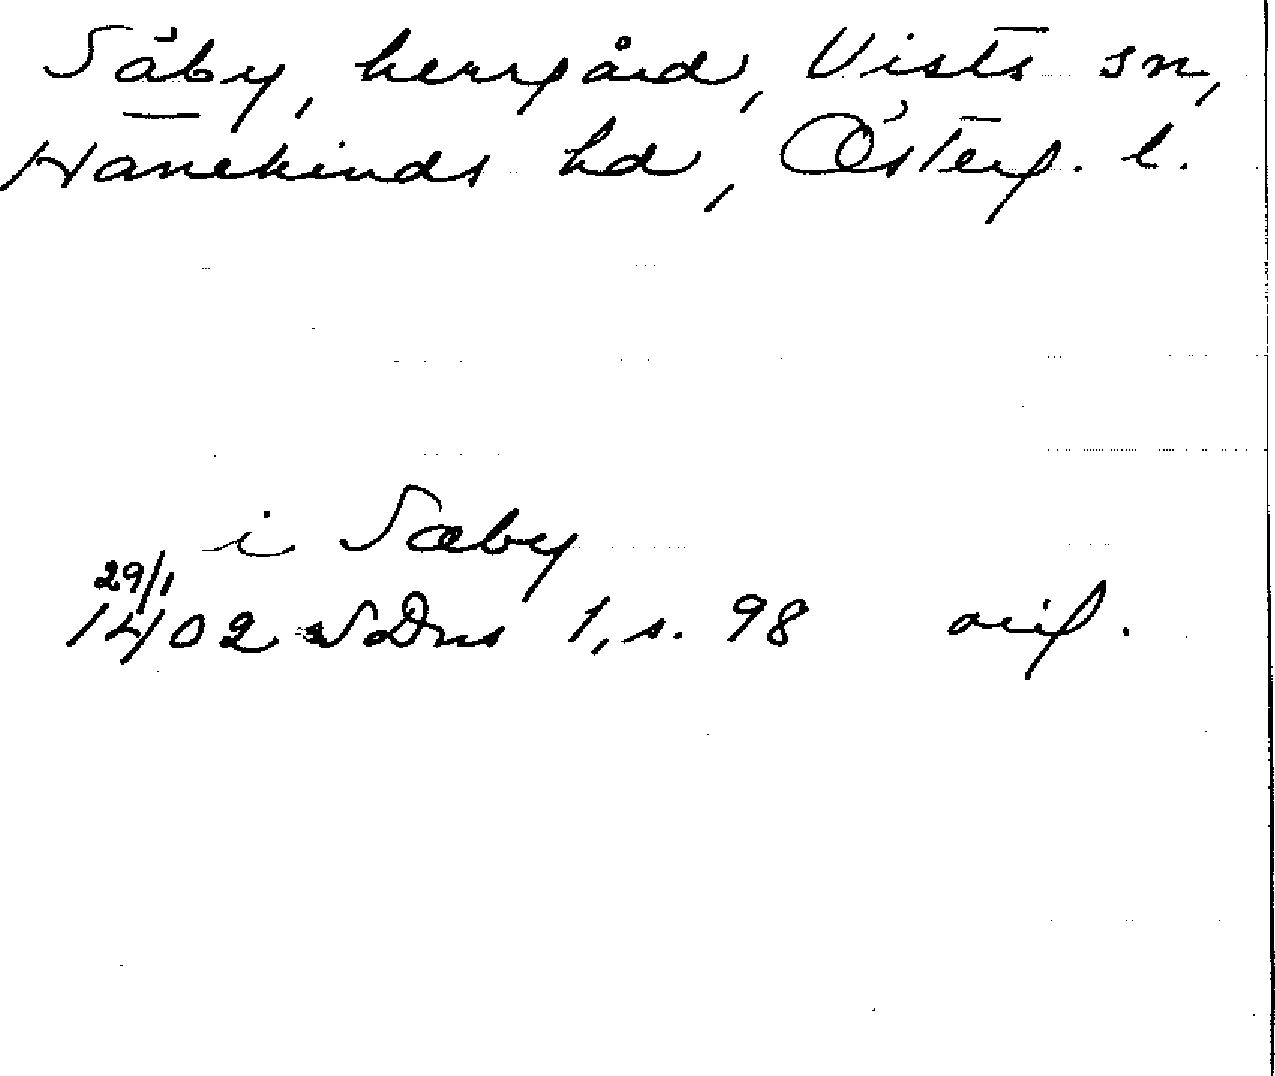 Säby, herrgård, Vists sn,
Hanekinds hd, Österg. l.
i Sæby
29/1
1402 SDns 1, s. 98 orig.